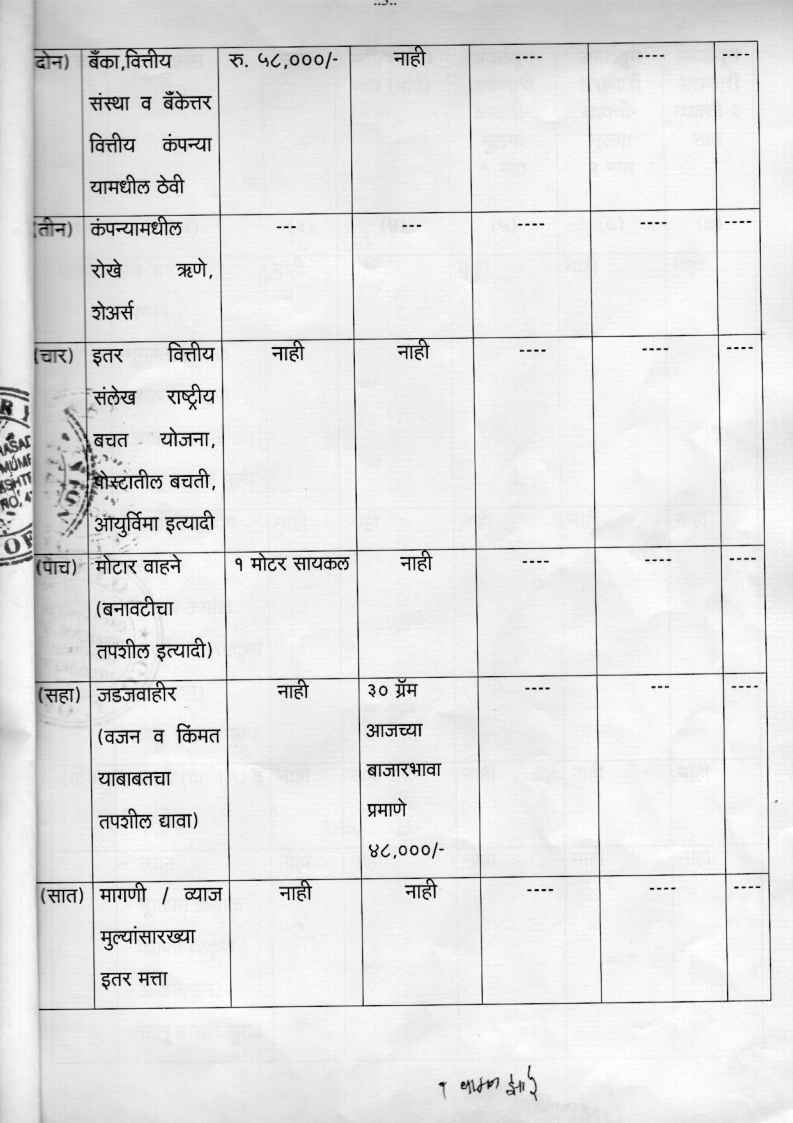 ..3..
दोन) बँका,वित्तीय रु. ५८,०००/- नाही ---- ---- ----
संस्था व बँकेत्तर
वित्तीय कंपन्या
यामधील ठेवी
(तीन) कंपन्यामधील --- ---- ---- ---- ----
रोखे ऋणे,
शेअर्स
(चार) इतर वित्तीय नाही नाही ---- ---- ----
संलेख राष्ट्रीय
बचत योजना,
पोस्टातील बचती,
आयुर्विमा इत्यादी
(पाच) मोटार वाहने १ मोटर सायकल नाही ---- ---- ----
(बनावटीचा
तपशील इत्यादी)
(सहा) जडजवाहीर नाही ३० ग्रॅम ---- --- ----
(वजन व किंमत आजच्या
याबाबतचा बाजारभावा
तपशील द्यावा) प्रमाणे
४८,०००/-
(सात) मागणी / व्याज नाही नाही ---- ---- ----
मुल्यांसारख्या
इतर मत्ता